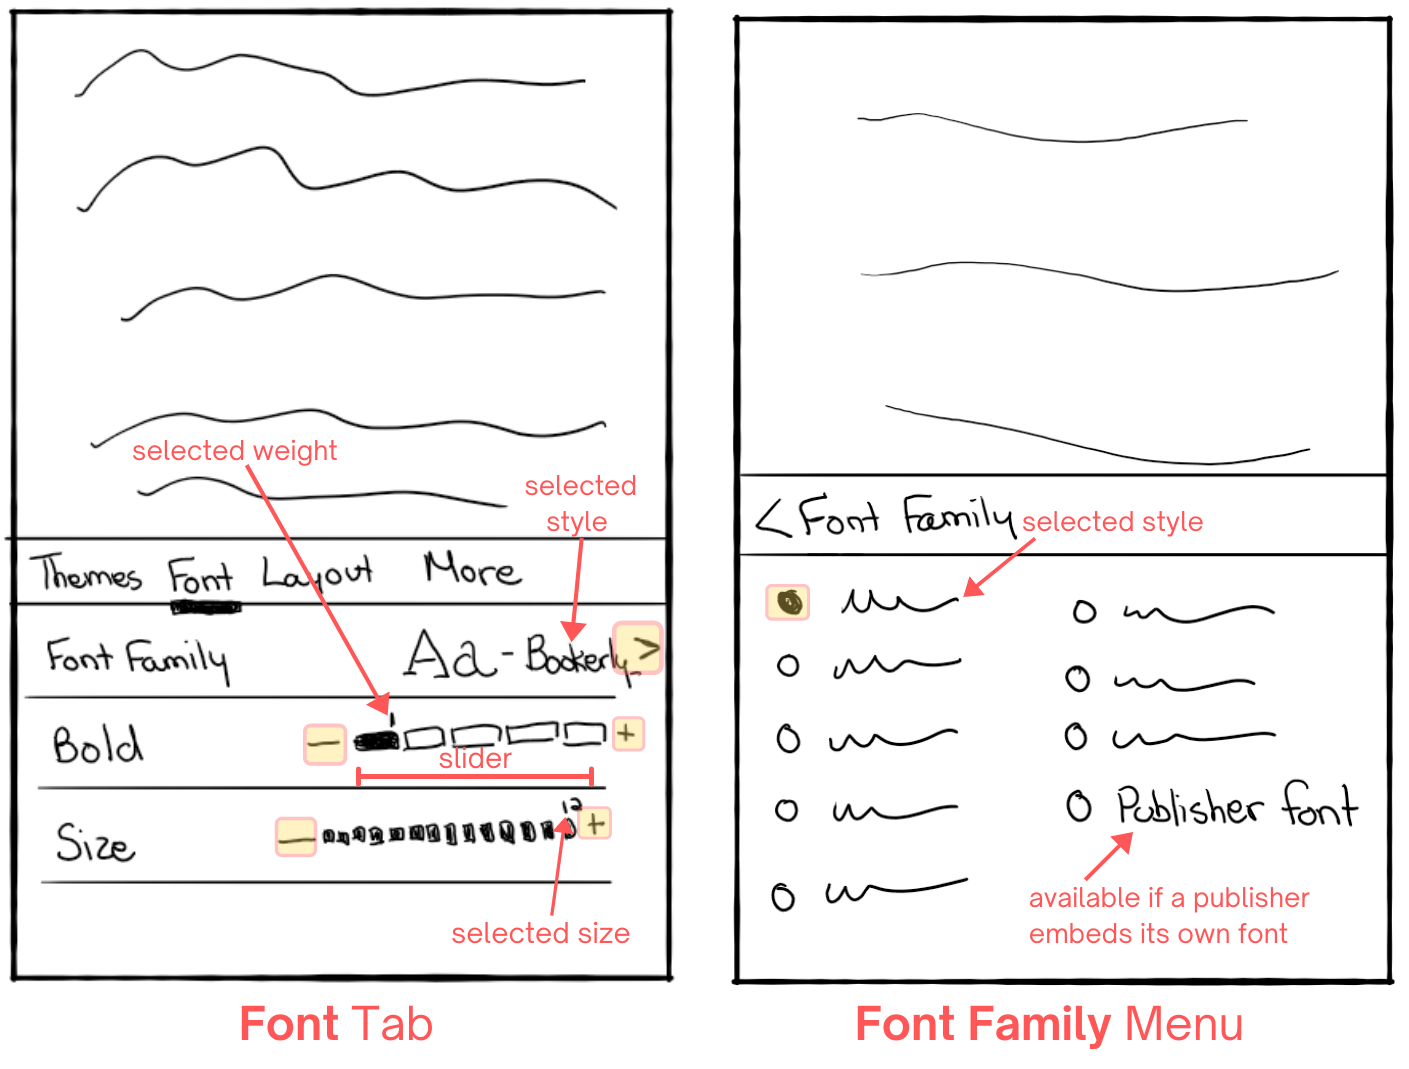 selected weight
selected
style
Themes Font Layout More
Font Family Aa - Bookerly >
Bold − 1 +
slider
Size − 12 +
selected size
Font Tab
< Font Family
selected style
Publisher font
available if a publisher
embeds its own font
Font Family Menu